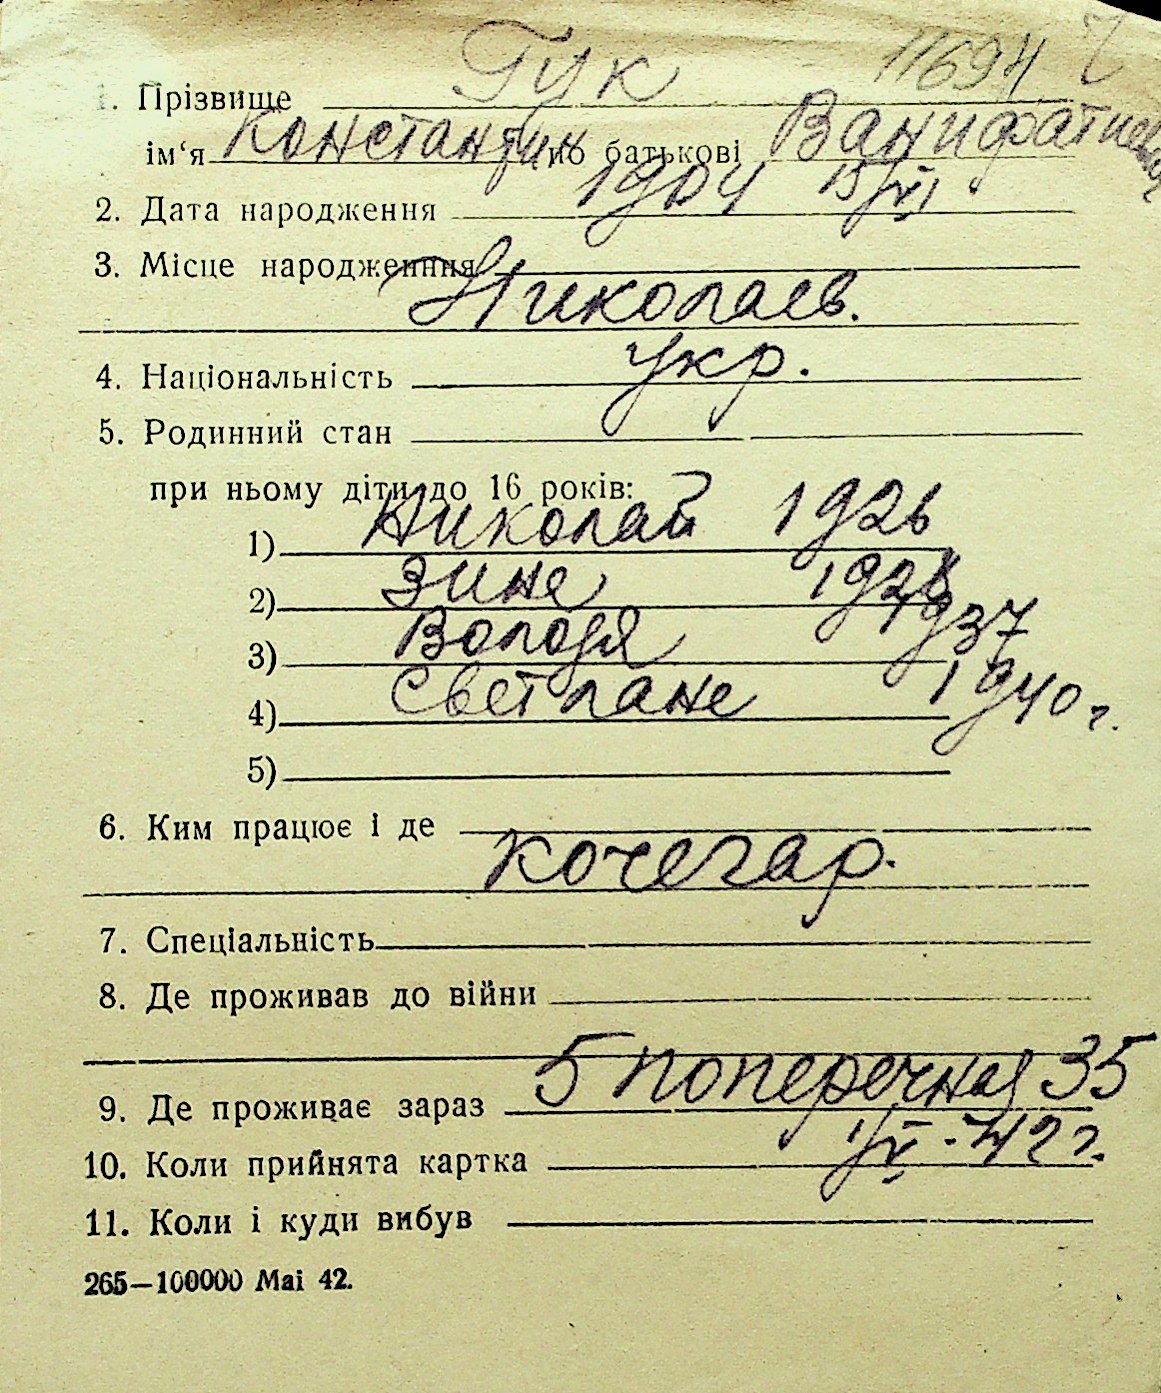 11694
1. Прізвище Гук
ім'я Константин по батькові Ванифатиевич
2. Дата народження 1904 15/VI
3. Місце народженння
Николаев.
4. Національність укр.
5. Родинний стан
при ньому діти до 16 років:
1) Николай 1926
2) Зине 1928
3) Володя 1937
4) Светлане 1940 г.
5)
6. Ким працює і де
кочегар.
7. Спеціальність
8. Де проживав до війни
9. Де проживає зараз 5 поперечная 35
10. Коли прийнята картка 1/V-42 г.
11. Коли і куди вибув
265—100000 Mai 42.